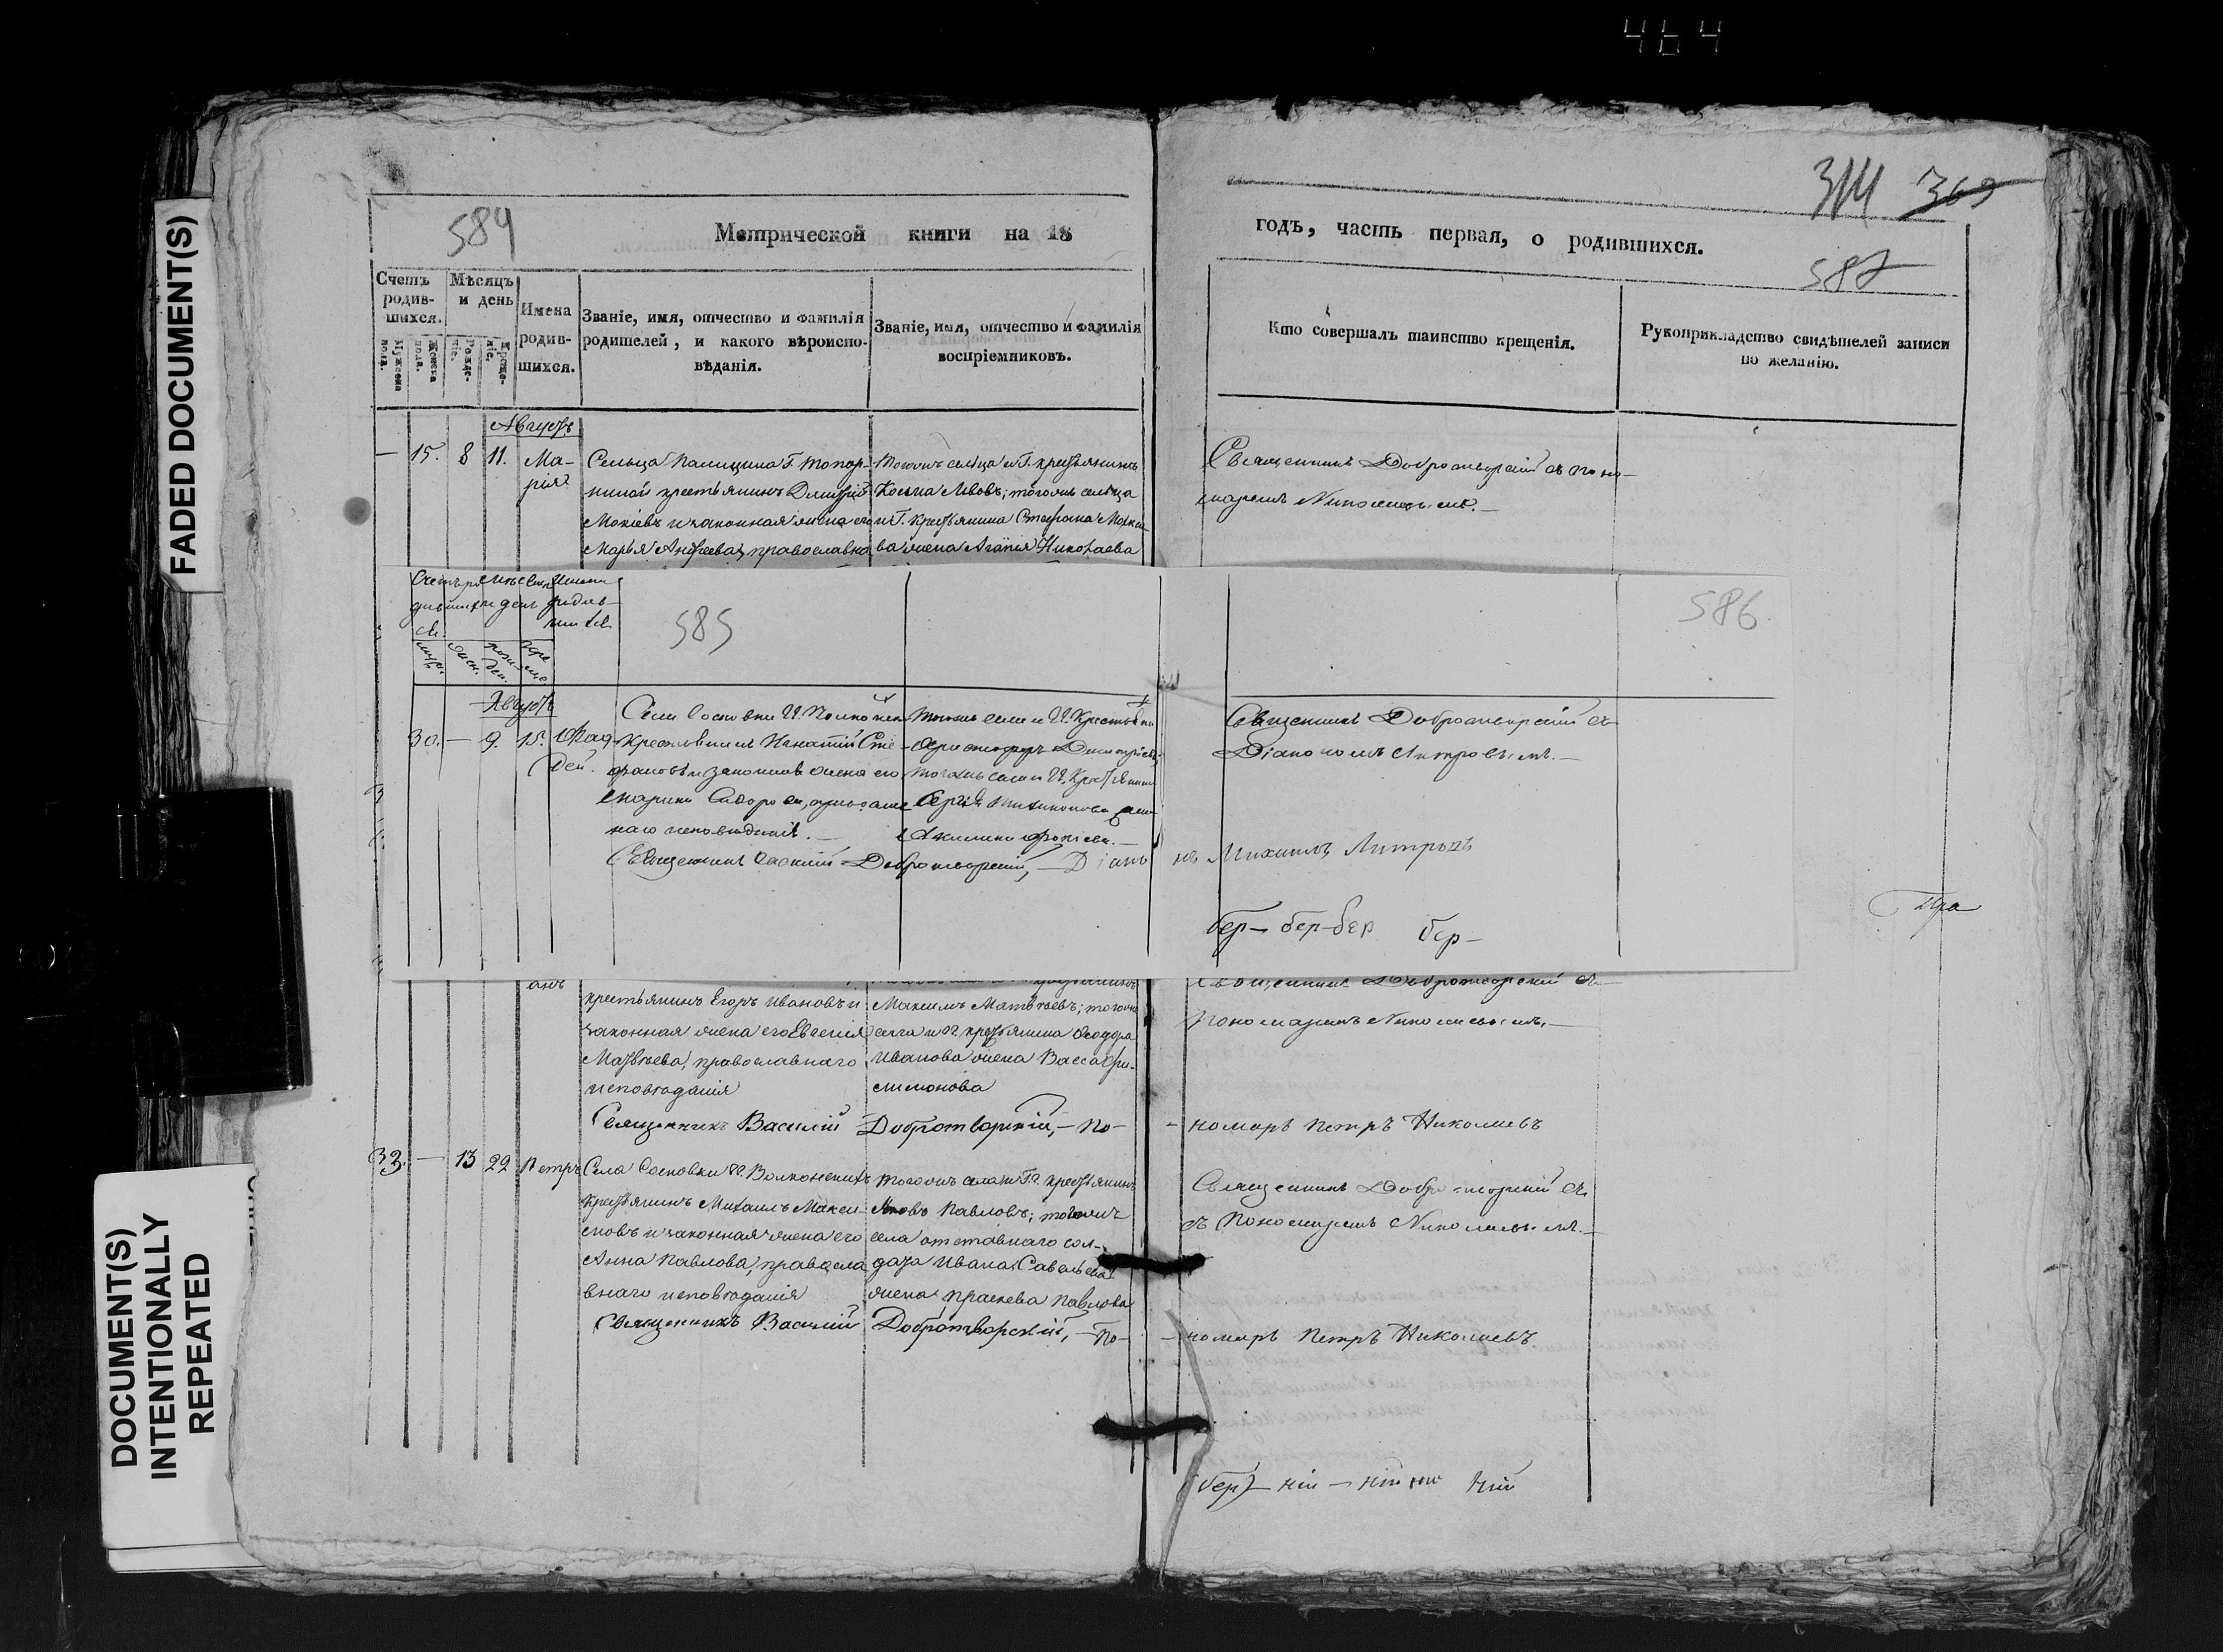 464
FADED DOCUMENT(S)
314 369
584
Метрической книги на 18
годъ, часть первая, о родившихся.
587
Счетъ родившихся.
Мѣсяцъ и день
Имена родившихся.
Званіе, имя, отчество и фамилія родителей, и какого вѣроисповѣданія.
Званіе, имя, отчество и фамилія воспріемниковъ.
Кто совершалъ таинство крещенія.
Рукоприкладство свидѣтелей записи по желанію.
Мужеска пола.
Женска пола.
Рожденіе.
Крещеніе.
Августъ
— 15. 8 11. Марія
Сельца Г. Топорниной крестьянинъ Дмитрій
Мокіевъ и законная жена его
Марья Андреева, православна
Тогожъ сельца и Г. крестьянинъ
Косьма Львовъ; тогожъ сельца
и Г. крестьянина Стефана
ва жена Агапія Николаева
Священникъ Добротворскій съ поно-
маремъ Николаевымъ. —
585
586
Августъ
30. — 9. 15. Фаддей.
Села Сосновки
Крестьянинъ Игнатій Сте-
фановъ и законная жена его
Марина Сидорова, православ-
наго исповѣданія. —
Тогожъ села и Крестьянинъ
Димитріевъ;
тогожъ села и Крестьянина
Сергѣя жена
Акилина
Священникъ Добротворскій съ
Діакономъ Митровымъ. —
Священникъ Василій Добротворскій, — Діако нъ Михаилъ Митровъ
бер — бер — бер бер —
анъ
крестьянинъ Егоръ Ивановъ и
законная жена его Евгенія
Матвѣева, православнаго
исповѣданія
Максимъ Матвѣевъ; тогожъ
села и крестьянина Ѳеодора
Иванова жена Васса Фи-
лимонова
Священникъ Добротворскій съ
Пономаремъ Николаевымъ. —
Священникъ Василій Добротворскій, — По- - номарь Петръ Николаевъ
33. — 13 22 Петръ
Села Сосновки Волконскихъ
крестьянинъ Михаилъ Макси-
мовъ и законная жена его
Анна Павлова, правосла
внаго исповѣданія
тогожъ села и крестьянинъ
Яковъ Павловъ; тогожъ
села отставнаго сол-
дата Ивана Савельева
жена Праскева Павлова
Священникъ Добротворскій съ
съ Пономаремъ Николаевымъ. —
Священникъ Василій Добротворскій, — По- - номарь Петръ Николаевъ
DOCUMENT(S)
INTENTIONALLY
REPEATED